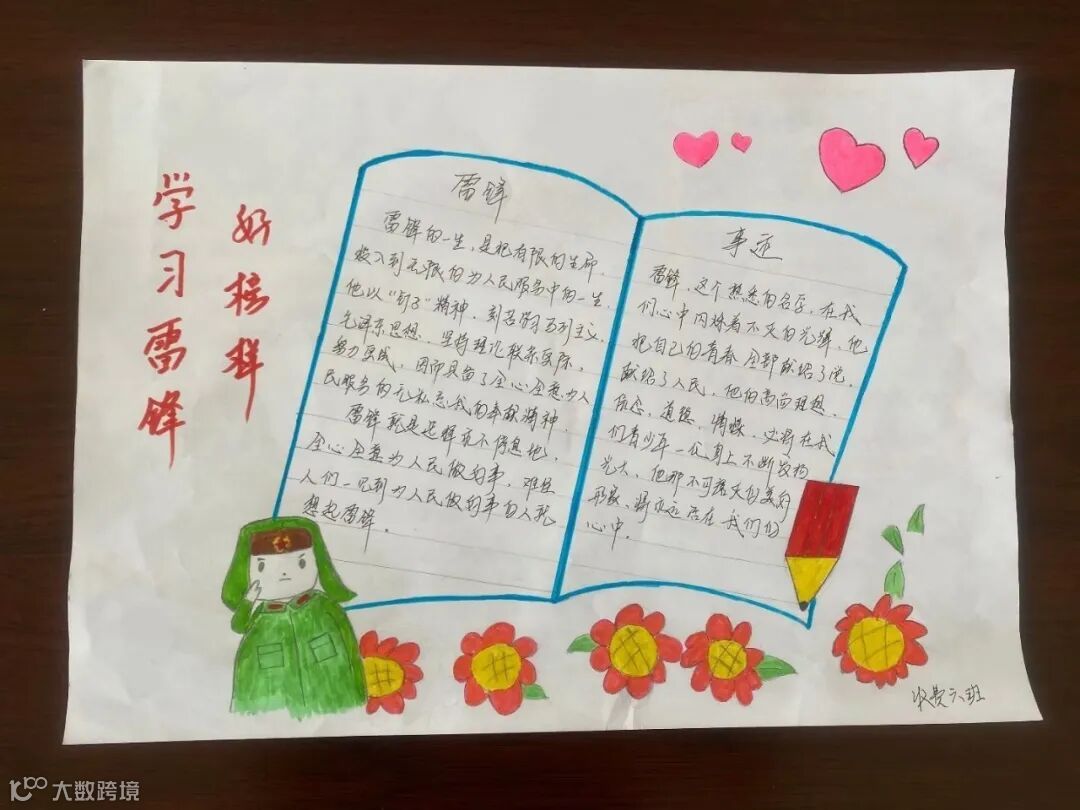 学习雷锋
好榜样
雷锋
雷锋的一生,是把有限的生命,
投入到无限的为人民服务中的一生.
他以"钉子"精神,刻苦学习马列主义
毛泽东思想,坚持理论联系实际,
努力实践,因而具备了全心全意为人
民服务的无私忘我的奉献精神,
雷锋就是这样夜不停息地、
全心全意为人民做好事,难怪
人们一见到为人民做好事的人就
想起雷锋.
事迹
雷锋,这个熟悉的名字,在我
们心中闪烁着不灭的光辉,他
把自己的青春全部献给了党,
献给了人民,他的高尚理想,
信念,道德,情操,必将在我
们青少年一代身上不断发扬
光大,他那不可磨灭的美好
形象,将永远活在我们的
心中.
收费六班
大数跨境